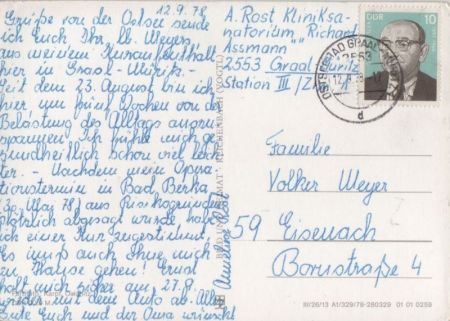 12.9.78
Grüße von der Ostsee sende
ich Euch Ihr lb. Meyers
aus meinem Kuraufenthalt
hier in Graal-Müritz.-
Seit dem 23. August bin ich
hier um fünf Wochen von der
Belastung des Alltags auszu
spannen. Ich fühle mich ge
sundheitlich schon viel leich
ter. - Nachdem mein Opera
tionstermin in Bad Berka
(30. Mai 78) aus Risikogründen
plötzlich abgesagt wurde, habe
ich einer Kur zugestimmt.
Es muß auch Ihnen mich
zu Hause gehen! Ernst
holt mich sicher am 27.9.
mit dem Auto ab. Alles
Gute Euch und der Oma wünscht
Anneliese Rost
A. Rost Kliniksa-
natorium "Richard
Assmann"
2553 Graal-
Müritz
Station III/
DDR
10
OSTSEEBAD GRAAL-MÜRITZ
2553
d
Familie
Volker Meyer
59 Eisenach
Bornstraße 4
REICHENBACH (VOGTL)
III/26/13 A1/329/78-280329 01 01 0259